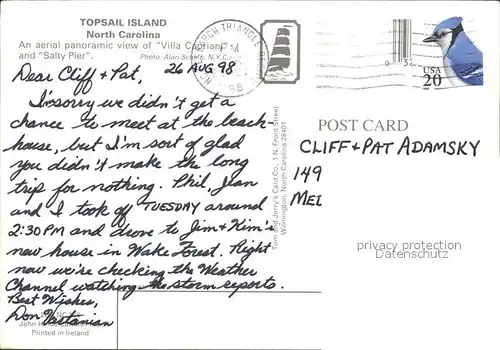 TOPSAIL ISLAND
North Carolina
An aerial panoramic view of "Villa Capriani"
and "Salty Pier".
Photo: Alan Schein, N.Y.C.
26 AUG 98
Dear Cliff + Pat,
I'm sorry we didn't get a
chance to meet at the beach-
house, but I'm sort of glad
you didn't make the long
trip for nothing. Phil, Jean
and I took off TUESDAY around
2:30 PM and drove to Jim + Kim's
new house in Wake Forest. Right
now we're checking the Weather
Channel watching the storm reports.
Best Wishes,
Don Vartanian
John Hinde
Printed in Ireland
Tom and Jerry's Card Co., 1 N. Front Street
Wilmington, North Carolina 28401
RESEARCH TRIANGLE
PM
98
USA
20
POST CARD
CLIFF + PAT ADAMSKY
149
MEI
privacy protection
Datenschutz